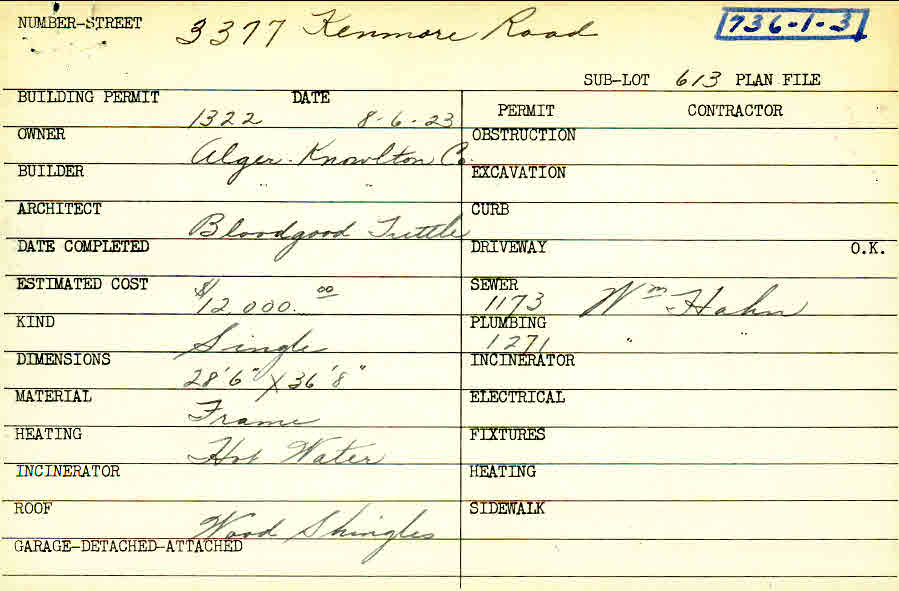 NUMBER-STREET 3377 Kenmore Road 736-1-3
SUB-LOT 613 PLAN FILE
BUILDING PERMIT 1322 DATE 8-6-23
PERMIT CONTRACTOR
OWNER Alger-Knowlton Co.
OBSTRUCTION
BUILDER " "
EXCAVATION
ARCHITECT Bloodgood Tuttle
CURB
DATE COMPLETED
DRIVEWAY O.K.
ESTIMATED COST $12,000.00
SEWER 1173 Wm Hahn
KIND Single
PLUMBING 1271 " "
DIMENSIONS 28'6" X 36'8"
INCINERATOR
MATERIAL Frame
ELECTRICAL
HEATING Hot Water
FIXTURES
INCINERATOR
HEATING
ROOF Wood Shingles
SIDEWALK
GARAGE-DETACHED-ATTACHED